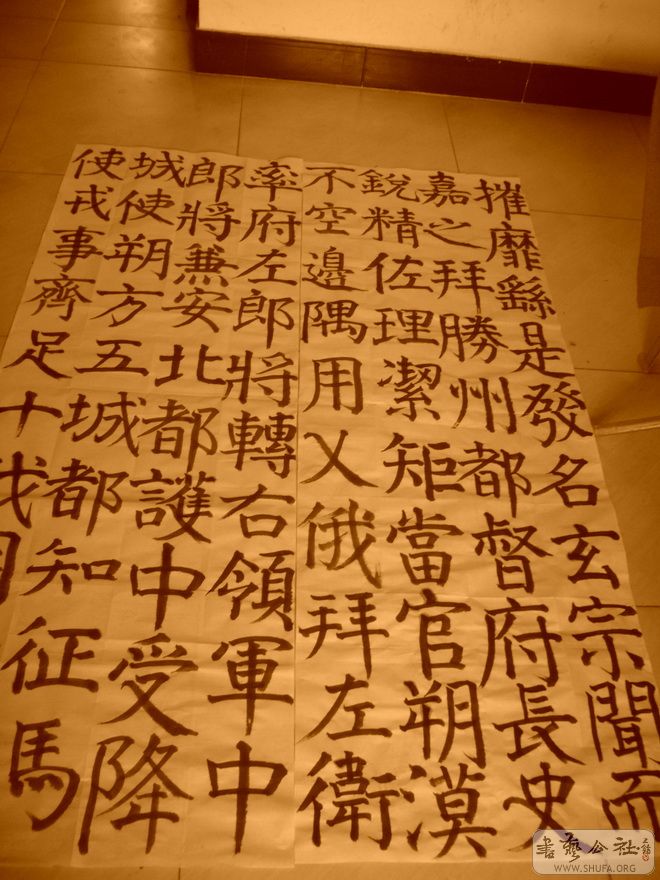 摧靡繇是發名玄宗聞而
嘉之拜勝州都督府長史
銳精佐理潔矩當官朔漠
不空邊隅用乂俄拜左衛
率府左郎將轉右領軍中
郎將兼安北都護中受降
城使朔方五城都知征馬
使戎事齊足十
書藝公社
WWW.SHUFA.ORG